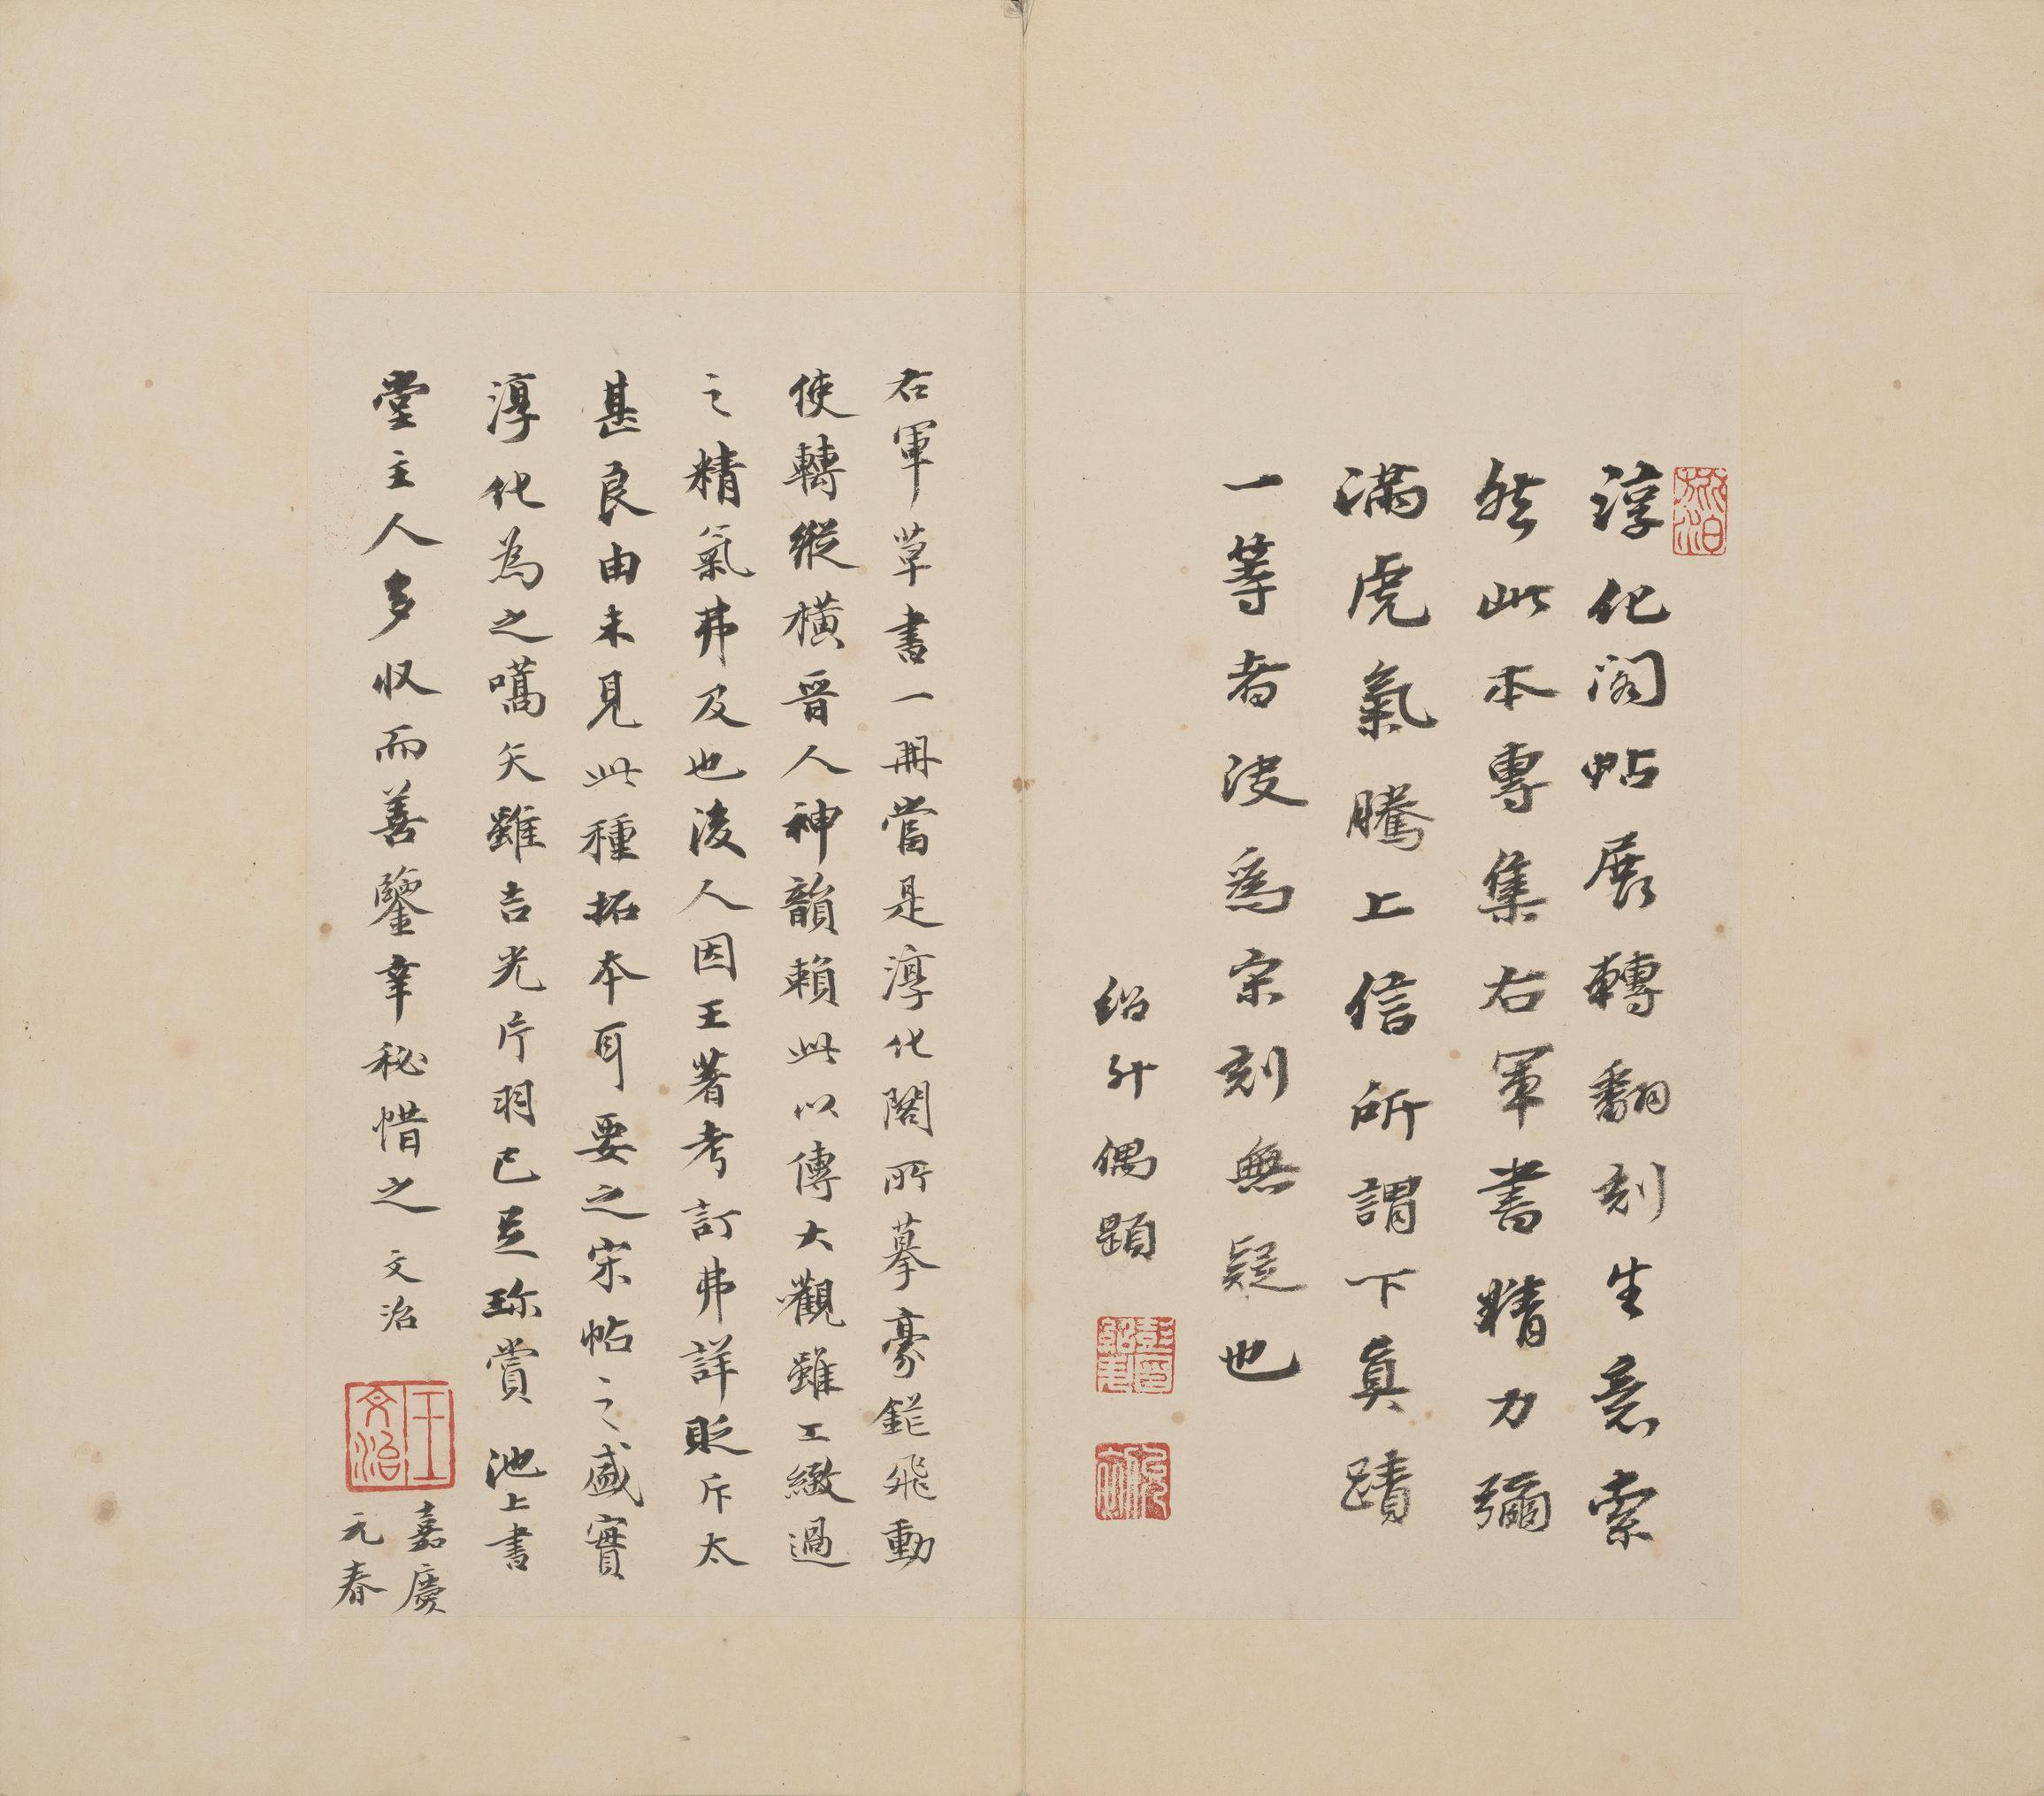 淳化閣帖展轉翻刻生意索
然此本專集右軍書精力彌
滿虎氣騰上信所謂下真蹟
一等者決為宋刻無疑也
紹升偶題
右軍草書一冊當是淳化閣所摹豪鋩飛動
使轉縱橫晉人神韻賴此以傳大觀雖工緻過
之精氣弗及也後人因王著考訂弗詳貶斥太
甚良由未見此種拓本耳要之宋帖之盛實
淳化為之嚆矢雖吉光片羽已足珎賞 池上書
堂主人多收而善鑒幸秘惜之 文治
王文治
嘉慶
元春